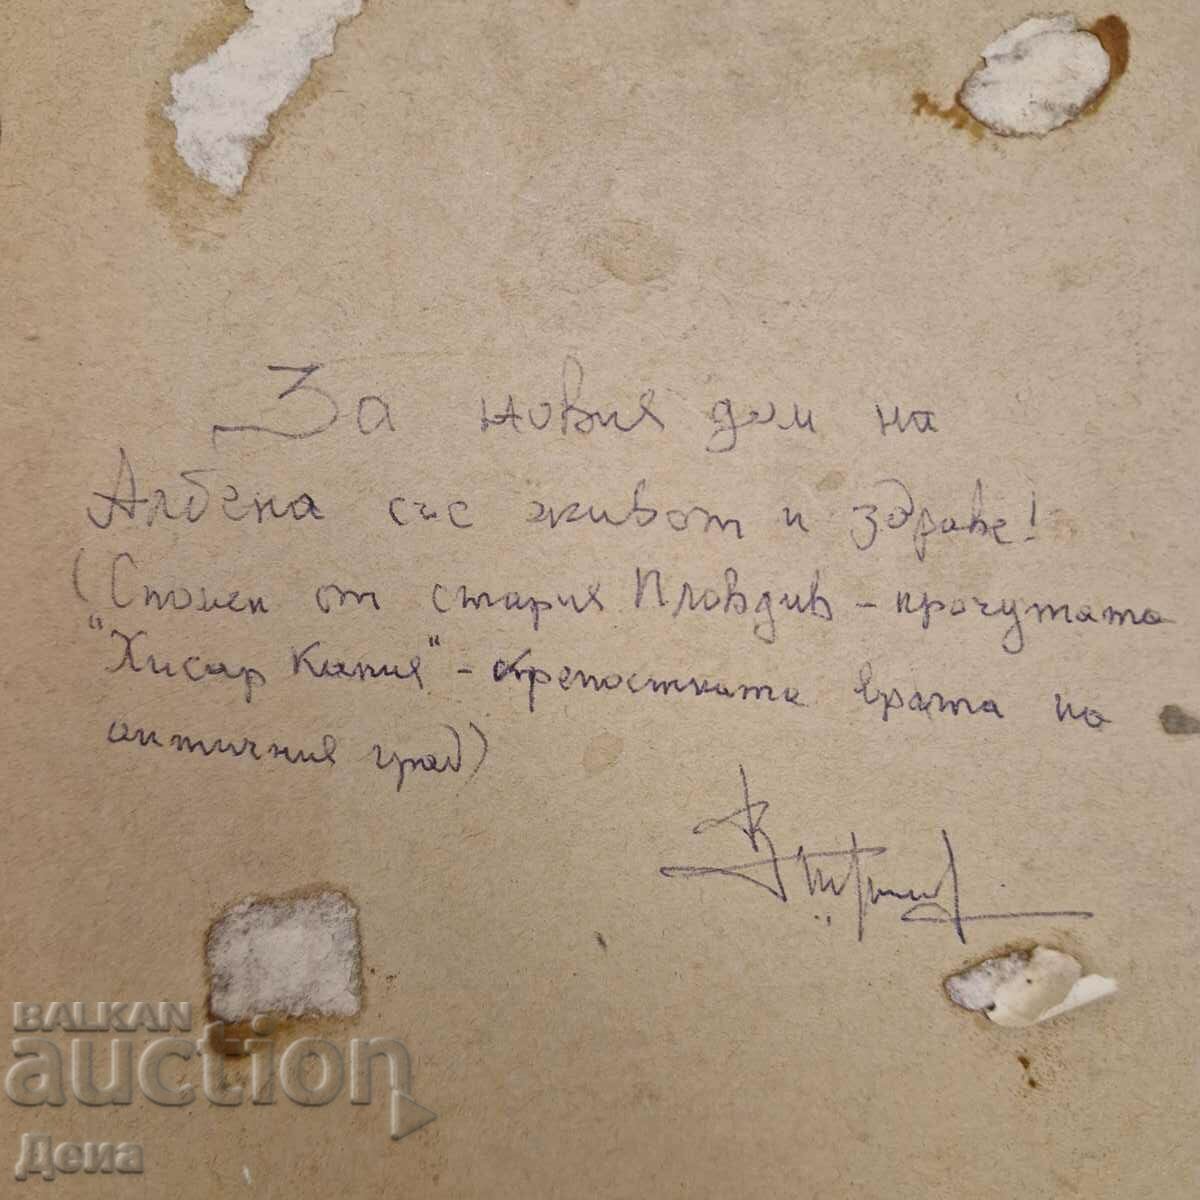 За новия дом на
Албена със живот и здраве!
(Спомен от стария Пловдив - прочутата
"Хисар Капия" - крепостната врата на
античния град)
BALKAN
auction
Дена